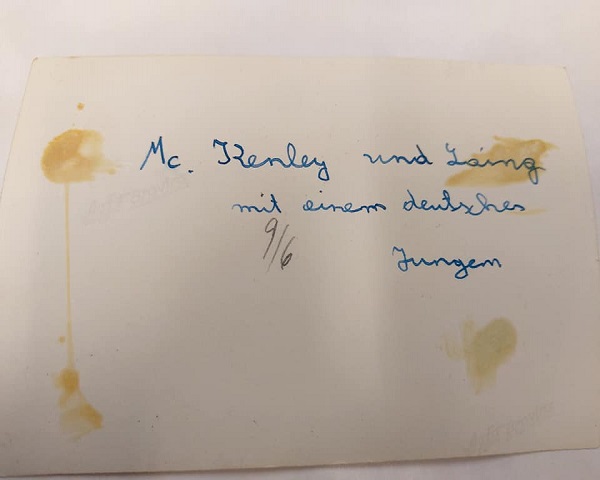 Mc. Kenley und Laing
mit einem deutschen
9/6
Jungen